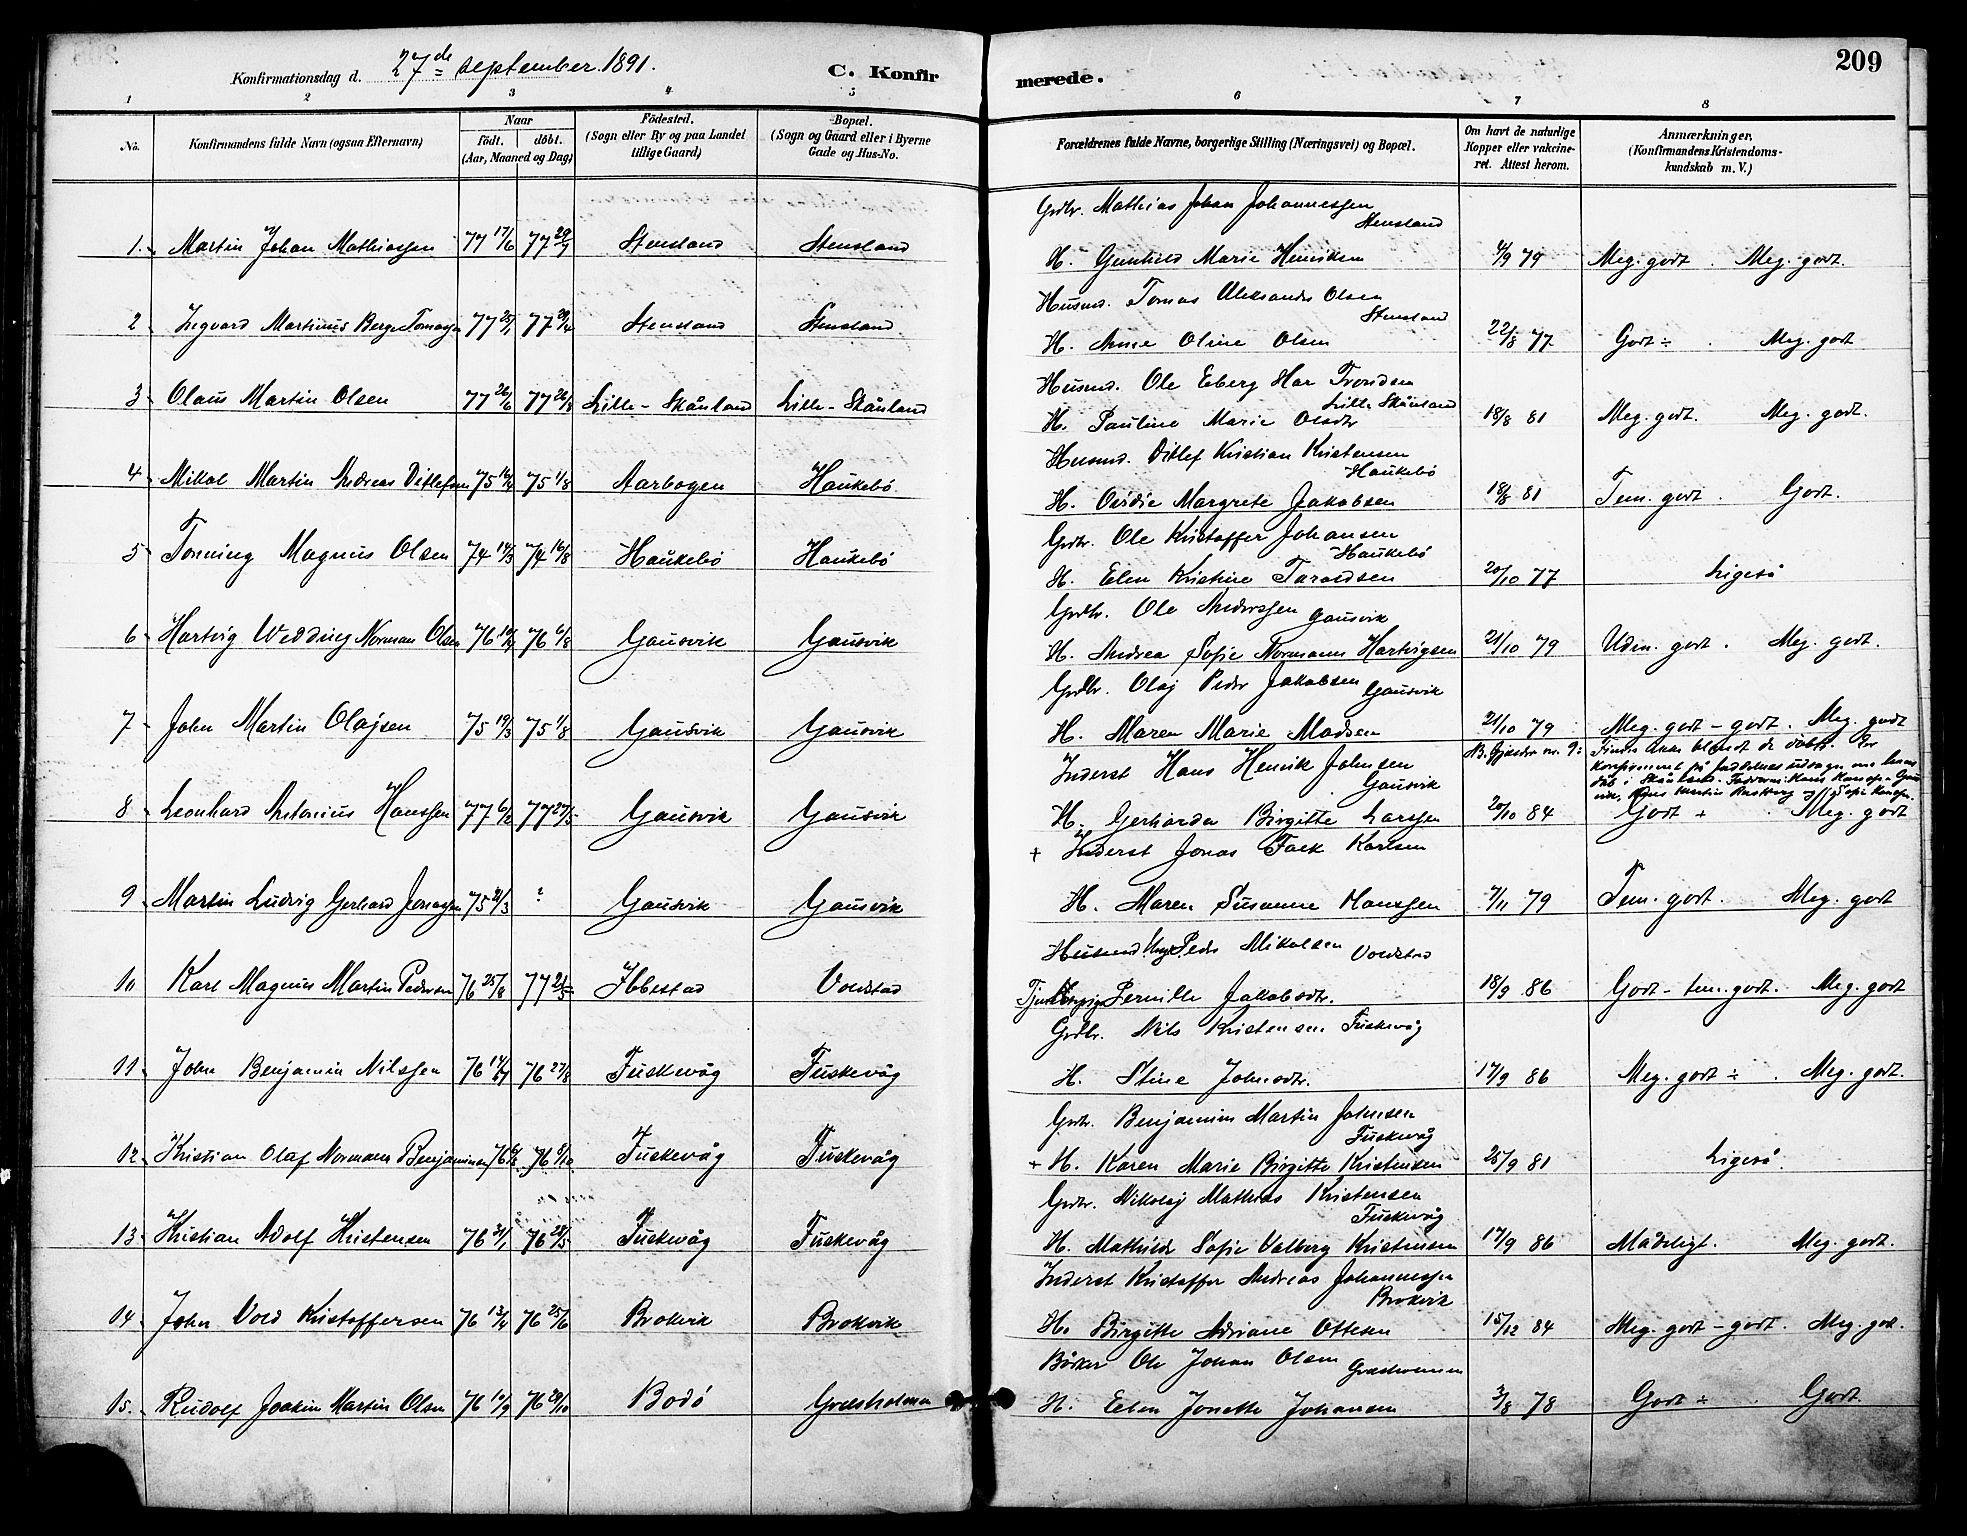 209
Konfirmationsdag d. 27de september 1891. C. Konfirmerede.
1 2 3 4 5 6 7 8
No. Konfirmandens fulde Navn (ogsaa Efternavn) Naar födt. döbt. (Aar, Maaned og Dag) Födested. (Sogn eller By og paa Landet tillige Gaard) Bopæl. (Sogn og Gaard eller i Byerne Gade og Hus-No. Forældrenes fulde Navne, borgerlige Stilling (Næringsvei) og Bopæl. Om havt de naturlige Kopper eller vakcineret. Attest herom. Anmærkninger. (Konfirmandens Kristendomskundskab m. V.)
Grdbr. Mathias Johan Johannessen Stensland
1. Martin Johan Mathiassen 77 17/6 77 29/7 Stensland Stensland H. Gunhild Marie Henriksen 4/9 79 Meg. godt. Meg. godt.
Husmd. Tomas Aleksander Olsen Stensland
2 Ingvard Martinus Berge Tomassen 77 77 29/4 Stensland Stensland H. Anne Oline Olsen 22/8 77 Godt ÷ . Meg. godt
Husmd. Ole Eberg Har Trondsen Lille Skånland
3 Olaus Martin Olsen 77 26/6 77 26/8 Lille-Skånland Lille-Skånland H. Pauline Marie Olsdtr 18/8 81 Meg. godt. Meg. godt.
Husmd. Ditlef Kristian Kristensen Haukebö
4 Mikal Martin Andreas Ditlefsen 75 75 1/8 Aarbogen Haukebö. H. Ovidie Margrete Jakobsen 18/8 81 Tem. godt. Godt.
Grdbr. Ole Kristoffer Johansen Haukebö
5 Tonning Magnus Olsen 74 14/3 74 16/8 Haukebö Haukebö H. Elen Kristine Taraldsen 20/10 77 Ligeså
Grdbr. Ole Anderssen Gausvik
6 Hartvig Wedding Norman Olsen 76 76 6/8 Gausvik Gausvik H. Andrea Sofie Normann Hartvigsen 21/10 79 Udm. godt. Meg. godt.
Grdbr. Olaj Peder Jakobsen Gausvik
7 John Martin Olajsen 75 19/3 75 1/8 Gausvik Gausvik H. Maren Marie Madsen 21/10 79 Meg. godt - godt. Meg. godt
Inderst Hans Henrik Johnsen Gausvik
NB. Gjælder no. 9: Findes ikke blandt de döbte. Er konfirmeret på Fadderes udsagn om hans dåb i Skånland. Faddere: Hans
8 Leonhard Antonius Hanssen 77 6/2 77 27/5 Gausvik Gausvik H. Gerharda Birgitte Larssen 20/10 84 Godt + . Meg. godt
+ Inderst Jonas Falk Karlsen
9 Martin Ludvig Gerhard Jonassen 75 21/3 ? Gausvik Gausvik H. Maren Susanne Hanssen 7/11 79 Tem. godt. Meg. godt
Husmd Peder Mikalsen Voldstad
10 Karl Magnus Martin Pedersen 76 25/8 77 21/5 Ibbestad Voldstad Pernille Jakobsdtr. 18/9 86 Godt - tem. godt. Meg. godt
Grdbr. Nils Kristensen Fuskevåg
11 John Benjamin Nilssen 76 76 27/8 Fuskevåg Fuskevåg H. Stine Johnsdtr. 17/9 86 Meg. godt ÷ . Meg. godt.
Grdbr. Benjamin Martin Johnsen Fuskevåg
12 Kristian Olaf Normann Benjaminsen 76 76 8/10 Fuskevåg Fuskevåg + H. Karen Marie Birgitte Kristensen 25/9 81 Ligeså.
Grdbr. Nikolaj Mathias Kristensen Fuskevåg
13 Kristian Adolf Kristensen 76 31/1 76 28/5 Fuskevåg Fuskevåg H. Mathilde Sofie Valborg Kristensen 17/9 86 Mådeligt. Meg. godt.
Inderst Kristoffer Andreas Johannessen Brokvik
14 John Vold Kristoffersen 76 13/4 76 25/6 Brokvik Brokvik H. Birgitte Adriane Ottesen 15/12 84 Meg. godt - godt. Meg. godt.
Bödker Ole Johan Olsen Græsholmen
15. Rudolf Joakim Martin Olsen 76 19/9 76 29/10 Bodö Græsholmen H. Elen Jonette Johansen 3/8 78 Godt ÷ . Godt.